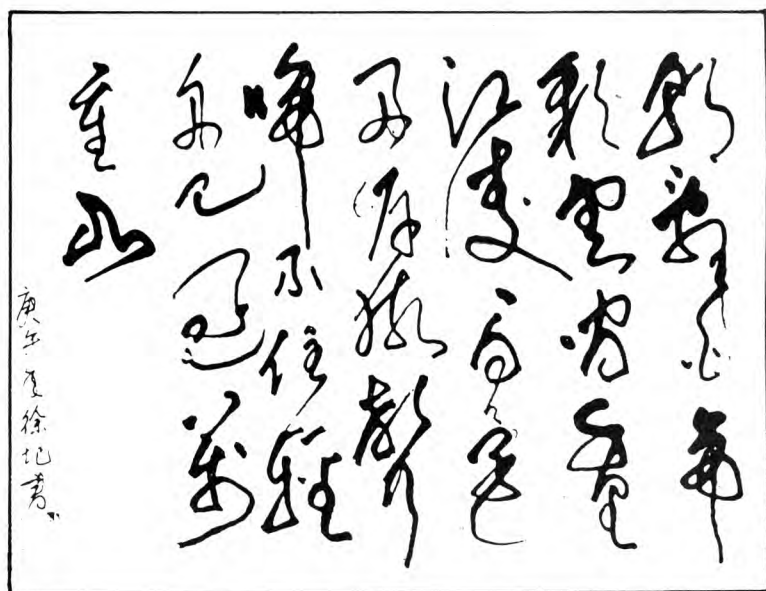 朝辭白帝
彩雲間千里
江陵一日還
兩岸猿聲
啼不住輕
舟已過萬
重山
庚午夏徐書